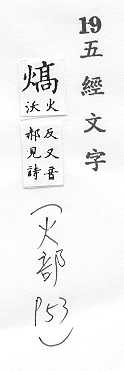 19五經文字
熇
火
沃
反又吾
郝見詩
(火部 P53)